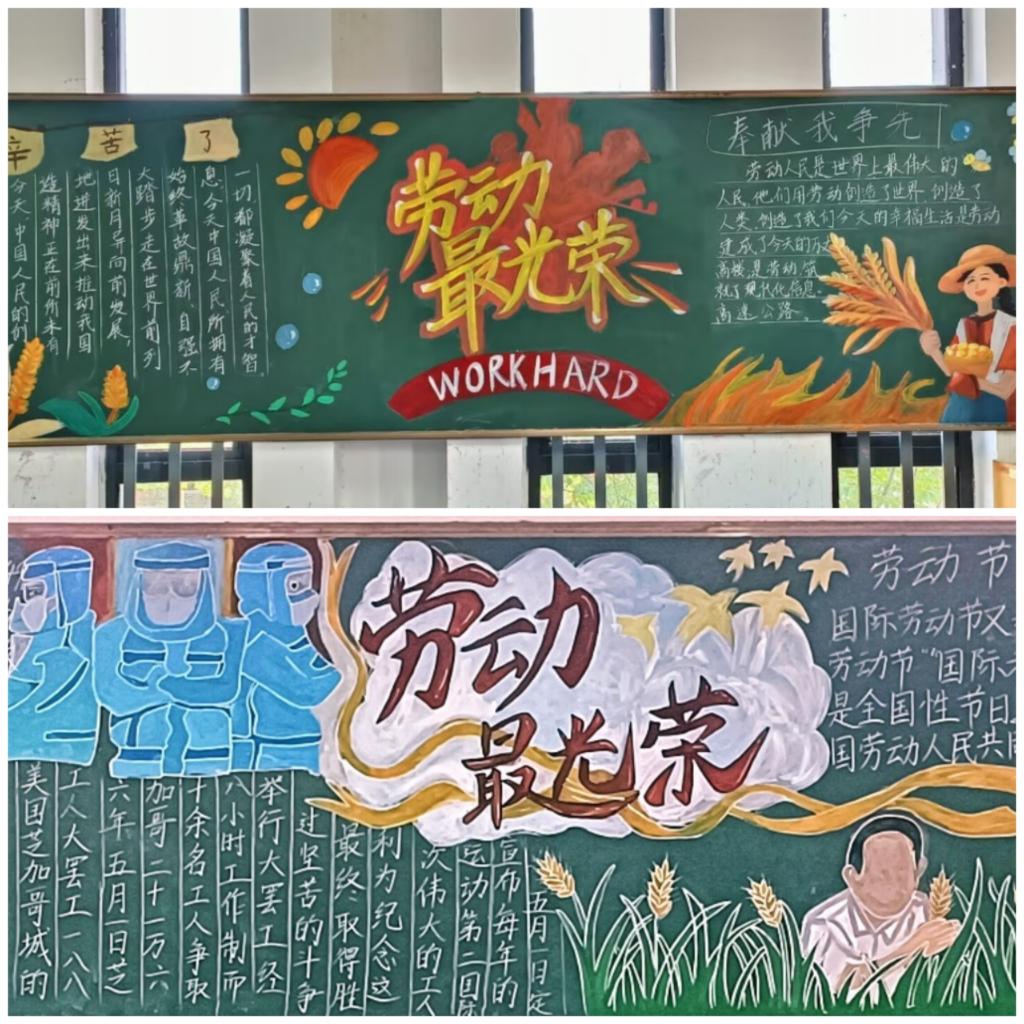 辛苦了
今天,中国人民的创
造精神正在前所未有
地迸发出来推动我国
日新月异向前发展,
大踏步走在世界前列
始终革故鼎新、自强不
息,今天中国人民所拥有
一切都凝聚着人民的才智
劳动
最光荣
WORKHARD
奉献我争先
劳动人民是世界上最伟大的
人民,他们用劳动创造了世界,创造了
人类,创造了我们今天的幸福生活是劳动
建成了今天的
高楼是劳动筑
就了现代化信息
高速公路
劳动
最光荣
劳动节
国际劳动节又
劳动节“国际
是全国性节日
国劳动人民共同
美国芝加哥城的
工人大罢工一八八
六年五月一日芝
加哥二十一万六
十余名工人争取
八小时工作制而
举行大罢工经
过坚苦的斗争
最终取得胜
利为纪念这
次伟大的工人
运动第二国际
宣布每年的
五月一日定